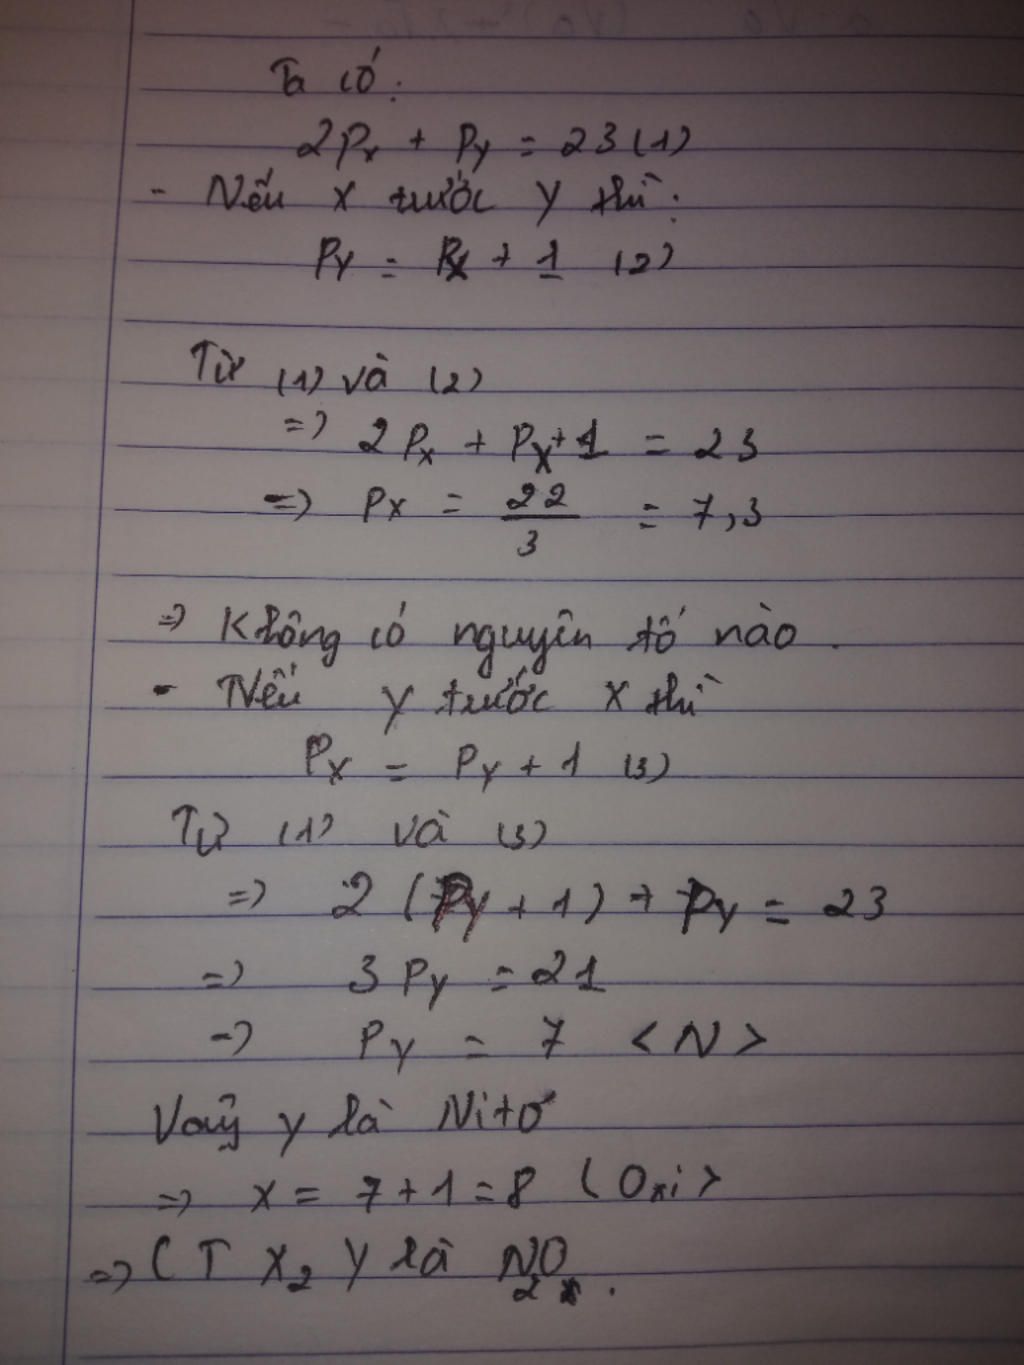 Ta có:
2Px + Py = 23 (1)
- Nếu X trước Y thì:
PY = PX + 1 (2)
Từ (1) và (2)
=> 2Px + PX + 1 = 23
=> PX = 22/3 = 7,3
=> Không có nguyên tố nào.
- Nếu Y trước X thì
PX = PY + 1 (3)
Từ (1) và (3)
=> 2 (Py + 1) + Py = 23
=> 3 Py = 21
=> PY = 7 <N>
Vậy y là Nitơ
=> X = 7 + 1 = 8 (Oxi>
=> CT X2 Y là NO2.